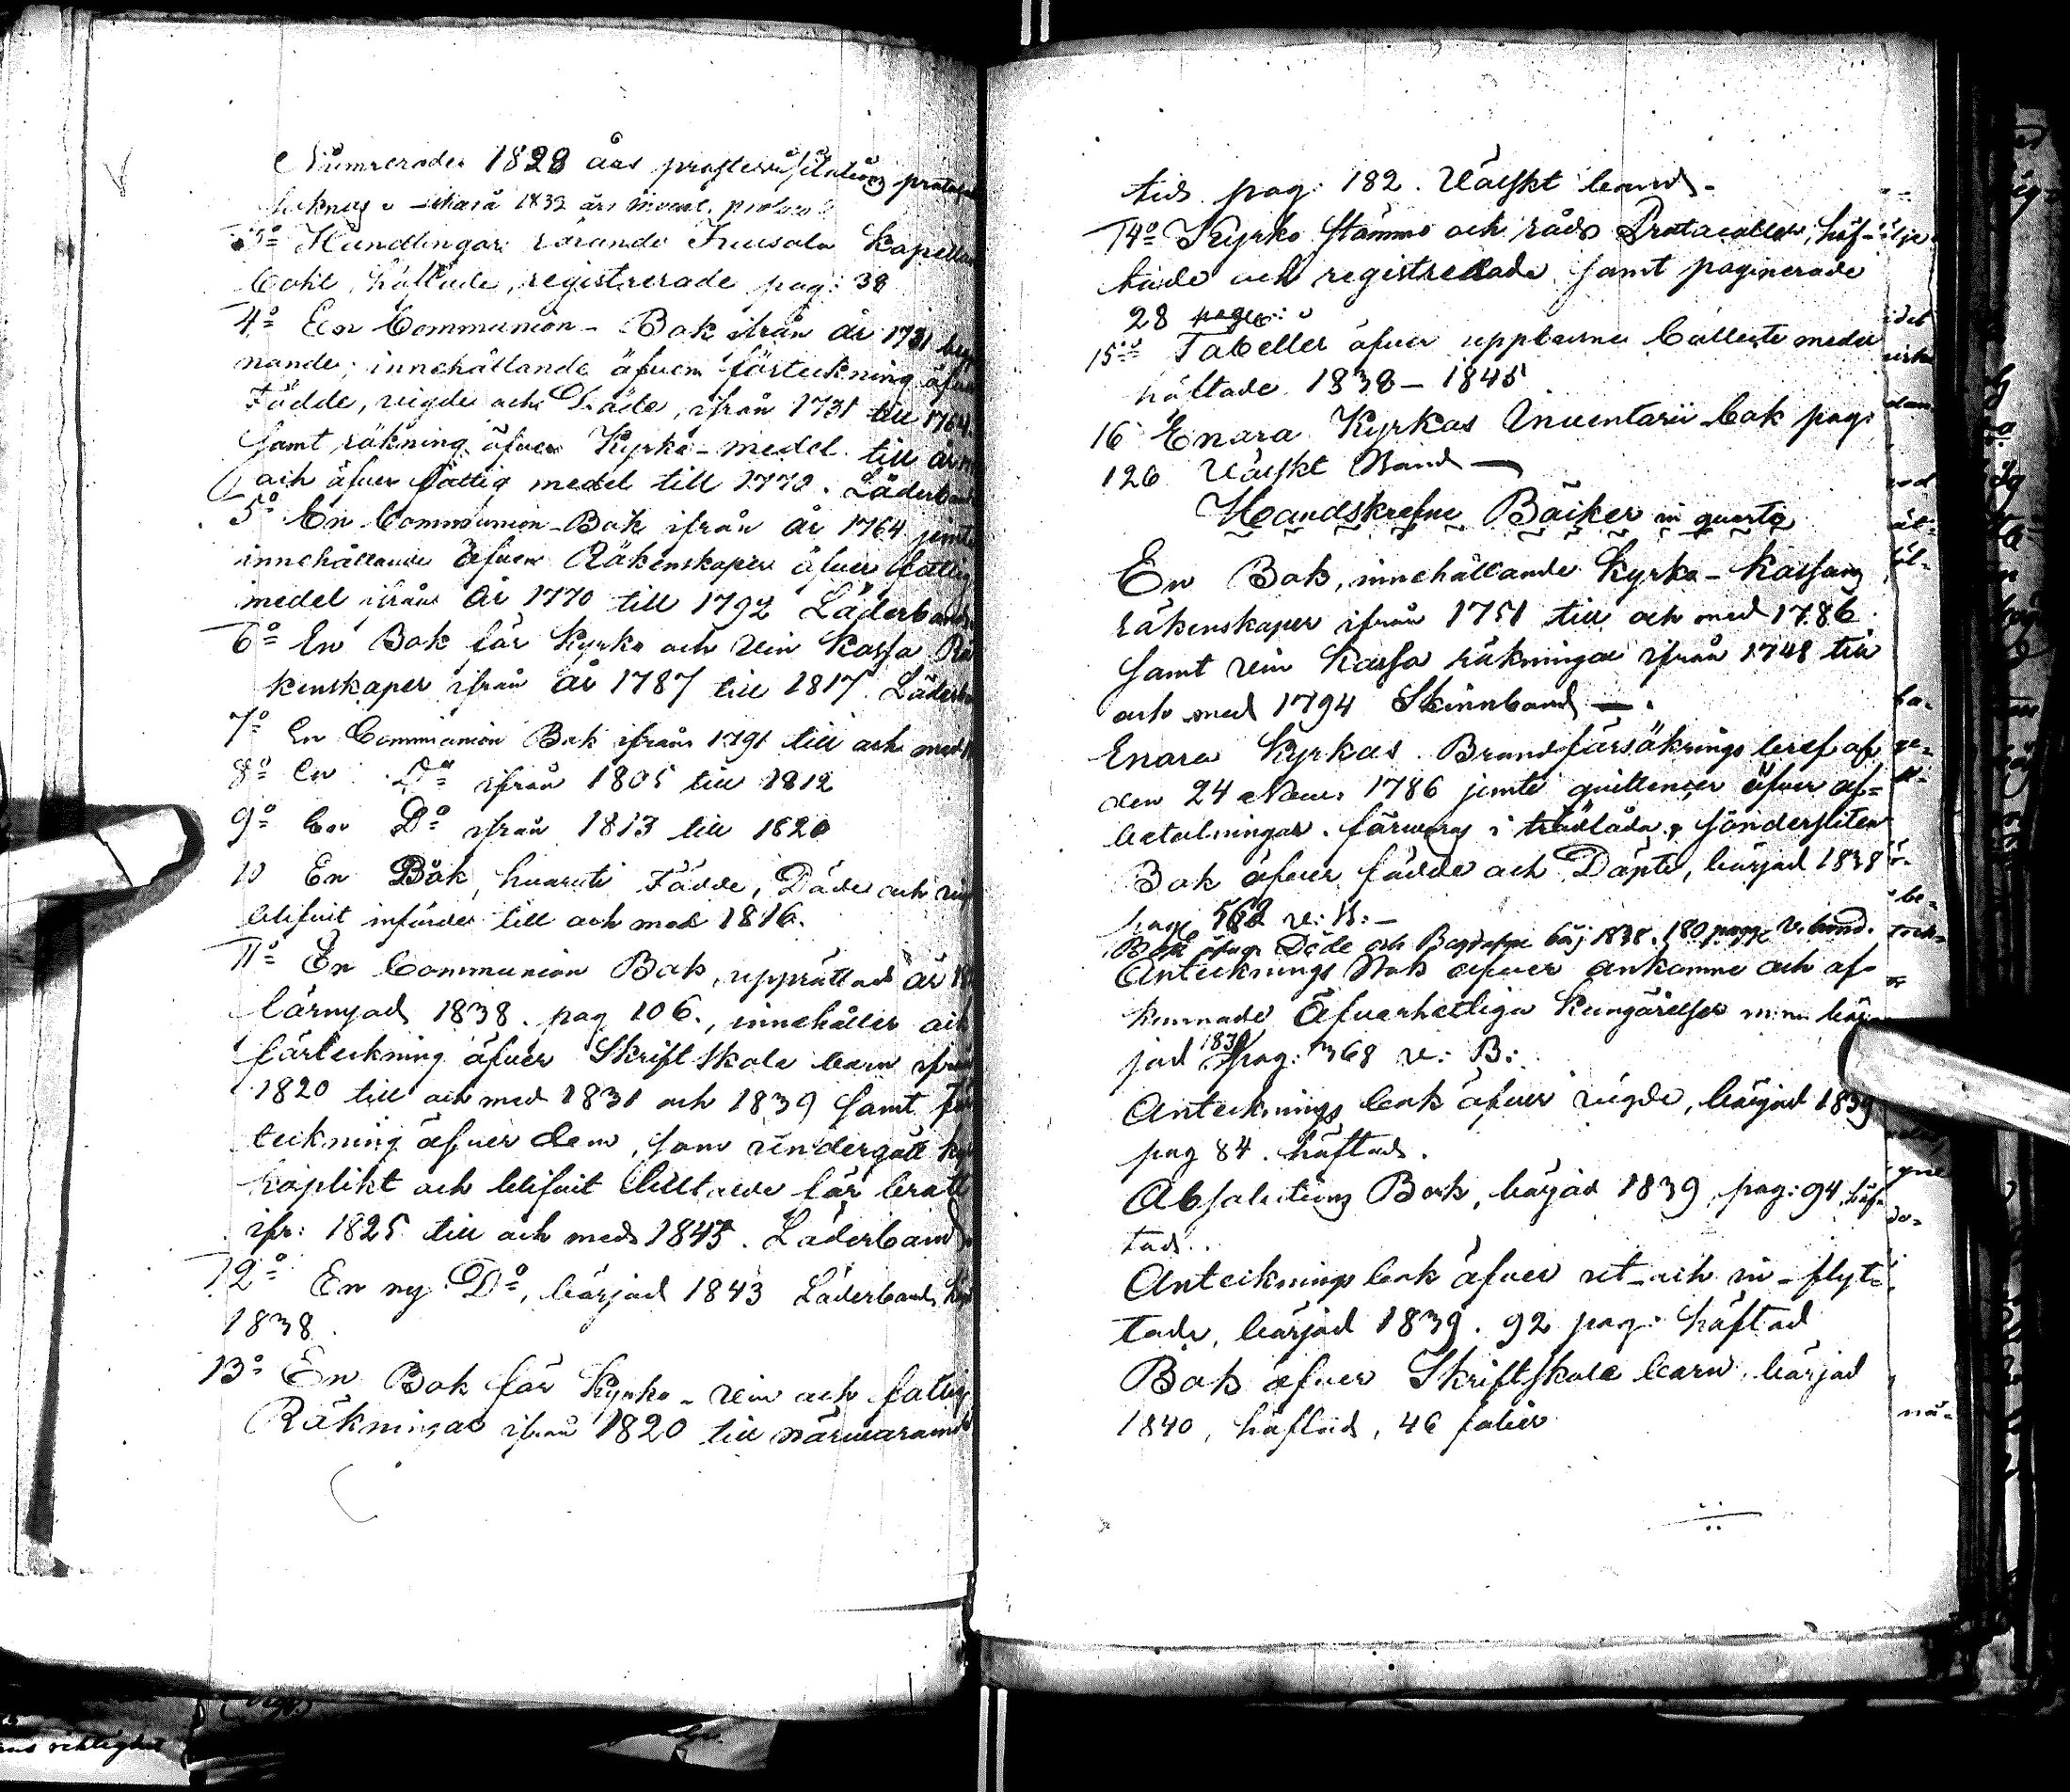 Numrerade. 1828 års prostevisitations protocoll
saknas 1832 års invent. protocol
3o Handlingar rörande Kapellan
Bohl, häftade, registrerade pag: 38
4o En Communion-Bok ifrån år 1731 begy
nande; innehållande äfven förteckning öfver
Födde, vigde och Döde, ifrån 1731 till 1764.
samt räkning öfver Kyrko-medel till år
och öfver fattig medel till 1770. Läderband
5o En Communion-Bok ifrån år 1764 jemte
innehållande äfven Räkenskaper öfver fattig
medel ifrån år 1770 till 1792 Läderband.
6o En Bok för Kyrko och Vin Kassa Rä
kenskaper ifrån år 1787 till 1817. Läderba
7o En Communion Bok ifrån 1791 till och med
8o En Do ifrån 1805 till 1812
9o En Do ifrån 1813 till 1820
10 En Bok, hvaruti Födde, Döde och vig
blifvit införde till och med 1816.
11o En Communion Bok, upprättad år
förnyad 1838. pag 106., innehåller och
förteckning öfver Skriftskole barn ifrån
1820 till och med 1831 och 1839 samt för
teckning öfver dem, som undergått ky
koplikt och blifvit för brott
ifr: 1825 till och med 1845. Läderband
12o En ny Do, börjad 1843 Läderband
1838.
13o En Bok för Kyrko-Vin och fattig
Räkningar ifrån 1820 till närvarande
tid. pag: 182. Wälskt band.
14o Kyrko stämmo och råds Protocoller, häf-
tade och registrerade samt paginerade
28 pager:
15o Tabeller öfver uppburne Collecte medel
häftade 1838-1845
16 Enara Kyrkas Inventarii bok pag:
126 Wälskt Band
Handskrefne Böcker in quarto
En Bok, innehållande Kyrko-Kassans
räkenskaper ifrån 1751 till och med 1786
samt Vin Kassa räkningar ifrån 1748 till
och med 1794 Skinnband.
Enara Kyrkas Brandförsäkrings bref af
den 24 Nov: 1786 jemte quittencer öfver af-
betalningar. förvaras i södersliten
Bok öfver födde och Döpte, börjad 1838
pag 562 v: B:
Bok öfver Döde och Begrafne börj 1838. 180 pagg v. band.
Antecknings Bok öfver ankomne och af-
kunnade Öfverhetliga Kungörelser m.m. bör-
jad 1838 pag: 368 v: B:
Antecknings bok öfver vigde, börjad 1839
pag 84. häftad.
Absolutions Bok, börjad 1839, pag: 94 häf-
tad.
Antecknings bok öfver ut- och in-flyt-
tade, börjad 1839. 92 pag: häftad
Bok öfver Skriftskole barn, börjad
1840, häftad, 46 folier